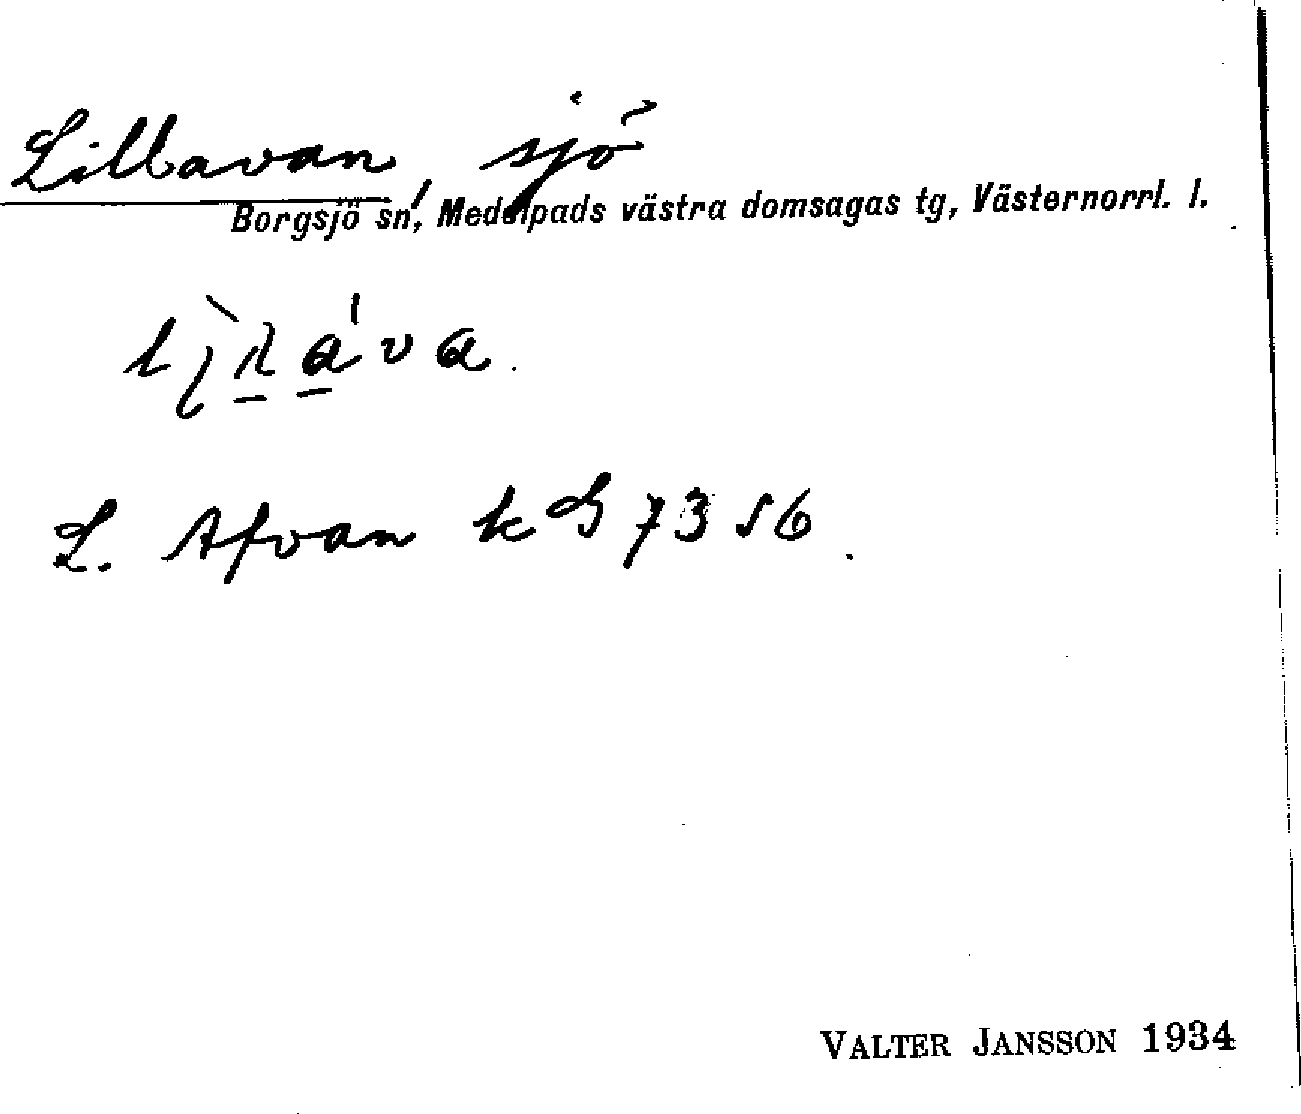 Lillavan, sjö
Borgsjö sn, Medelpads västra domsagas tg, Västernorrl. l.
L. Afvan
VALTER JANSSON 1934